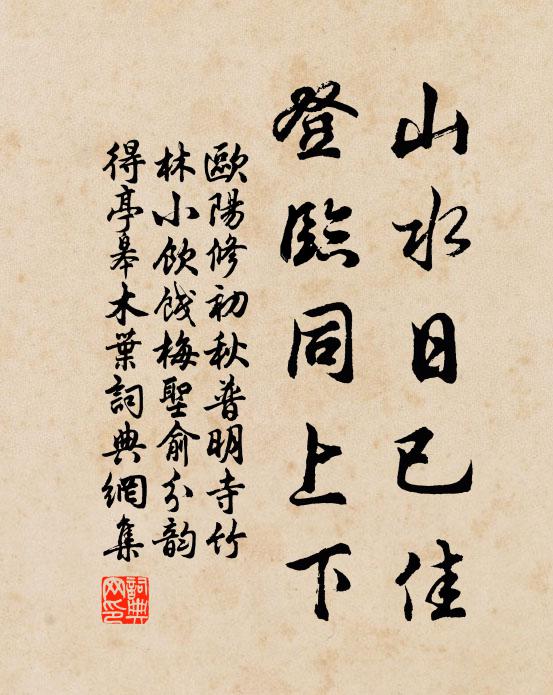 山水日已佳
登臨同上下
歐陽修初秋普明寺竹
林小飲餞梅聖俞分韵
得亭皋木葉詞典網集
詞典网印